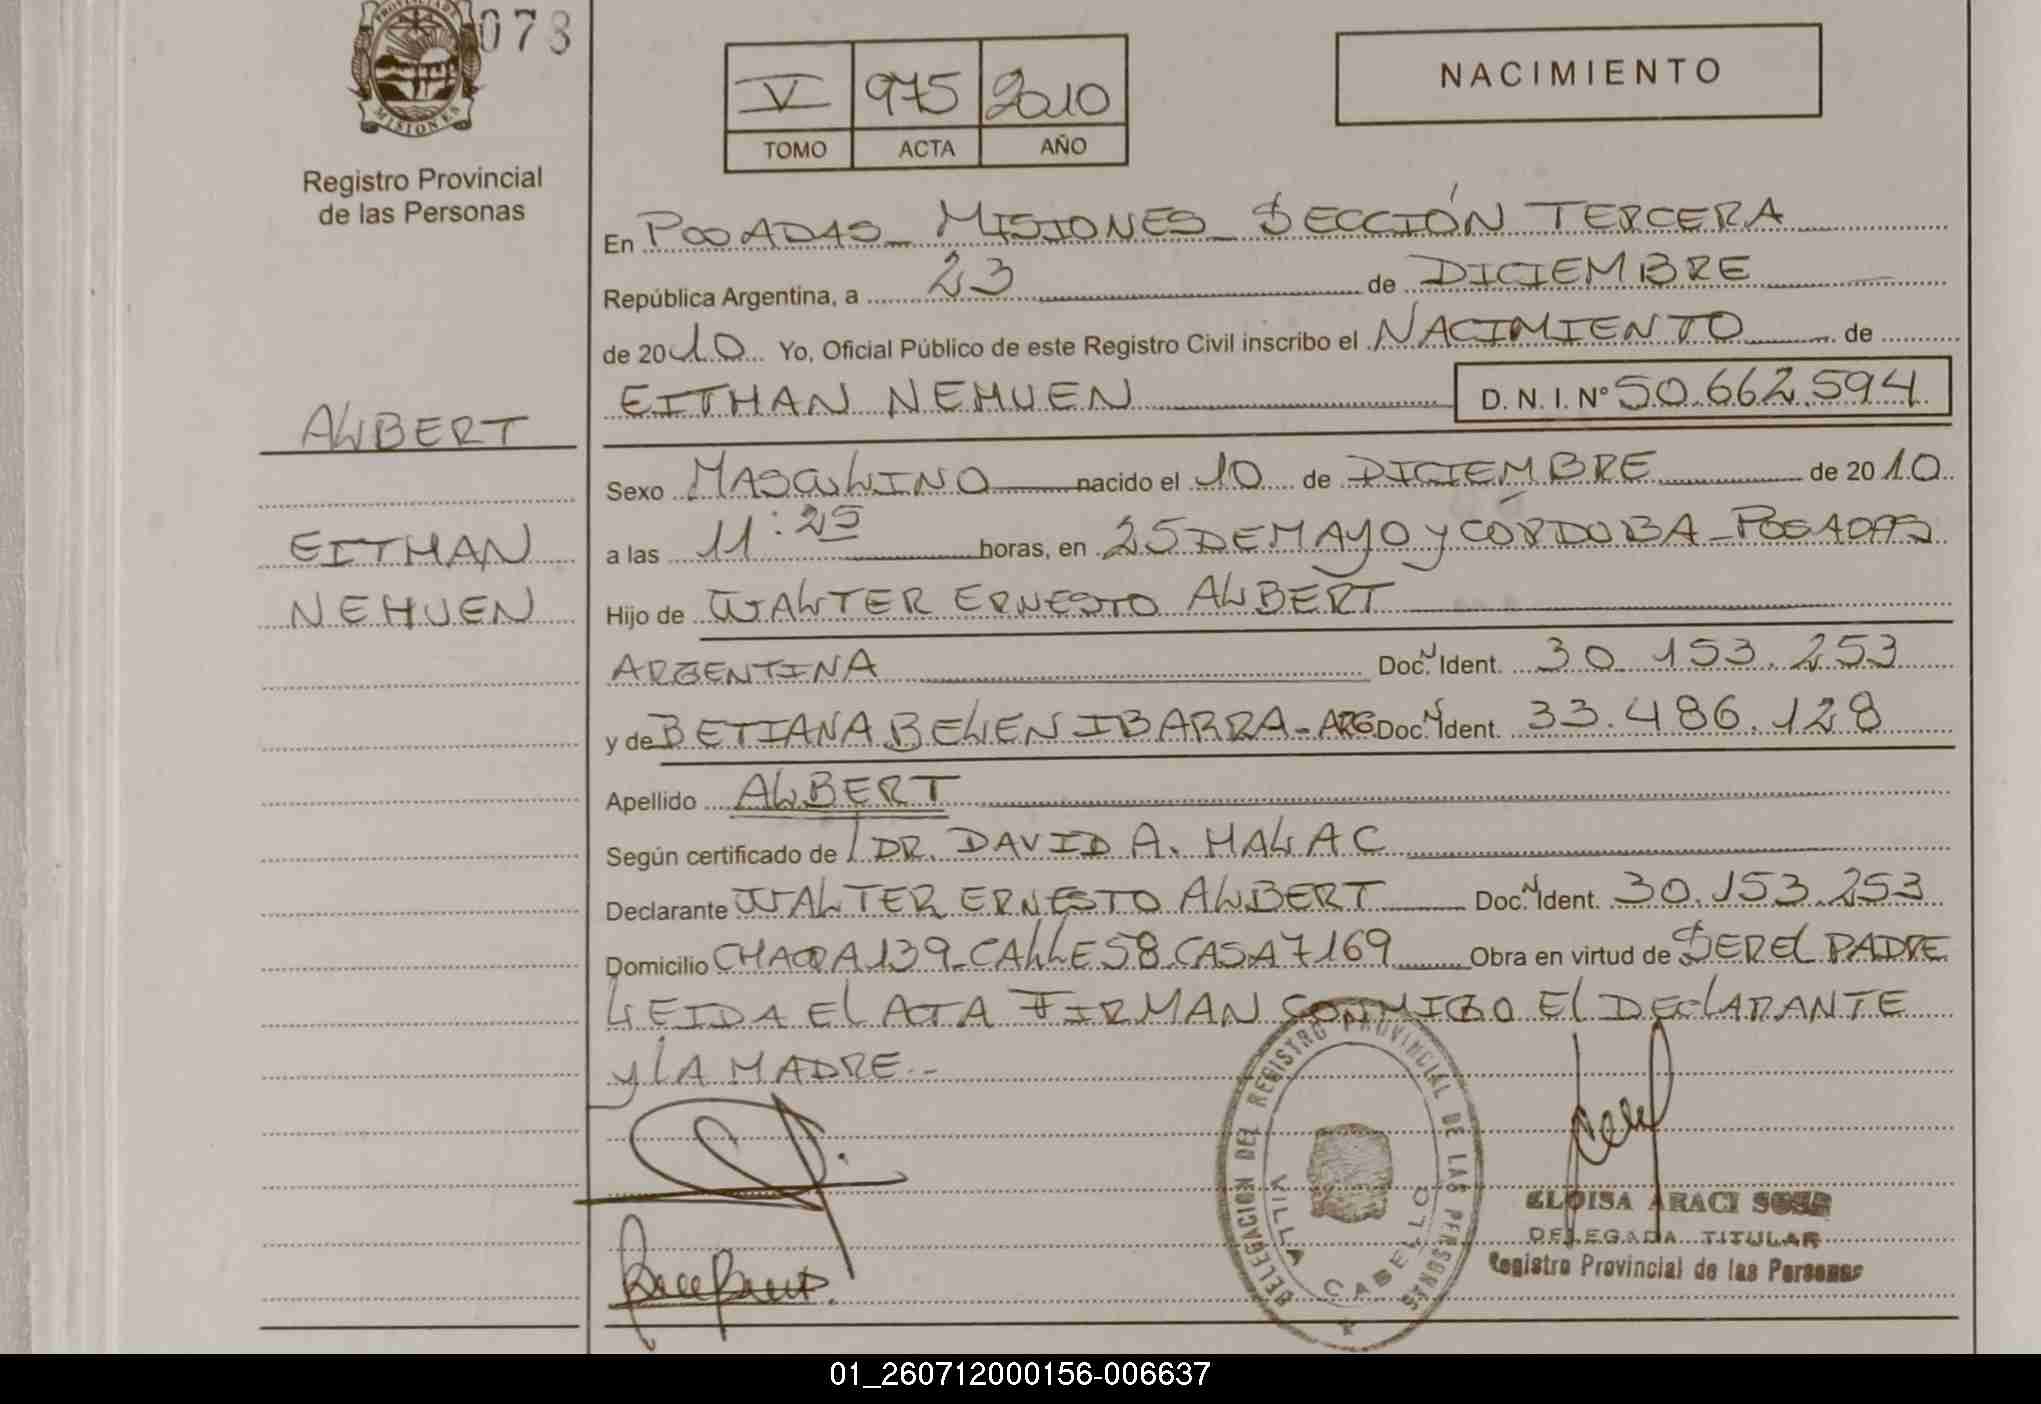 PROVINCIA DE
MISIONES
073
Registro Provincial
de las Personas
ALBERT
EITHAN
NEHUEN
V 975 2010
TOMO ACTA AÑO
NACIMIENTO
En POSADAS_ MISIONES_ SECCIÓN TERCERA
República Argentina, a 23 de DICIEMBRE
de 2010 Yo, Oficial Público de este Registro Civil inscribo el NACIMIENTO de
EITHAN NEHUEN D. N. I. Nº 50.662.594
Sexo MASCULINO nacido el 10 de DICIEMBRE de 2010
a las 11:25 horas, en 25 DE MAYO y CÓRDOBA_POSADAS
Hijo de WALTER ERNESTO ALBERT
ARGENTINA Doc. Ident. 30.153.253
y de BETIANA BELEN IBARRA - ARG Doc. Ident. 33.486.128
Apellido ALBERT
Según certificado de DR. DAVID A. HALAC
Declarante WALTER ERNESTO ALBERT Doc. Ident. 30.153.253
Domicilio CHACRA 139_CALLE 58 CASA 7169 Obra en virtud de SER EL PADRE
LEIDA EL ACTA FIRMAN CONMIGO EL DECLARANTE
y LA MADRE.-
DELEGACION DEL REGISTRO PROVINCIAL DE LAS PERSONAS
VILLA CABELLO
ELOISA ARACI SOSA
DELEGADA TITULAR
Registro Provincial de las Personas
01_260712000156-006637